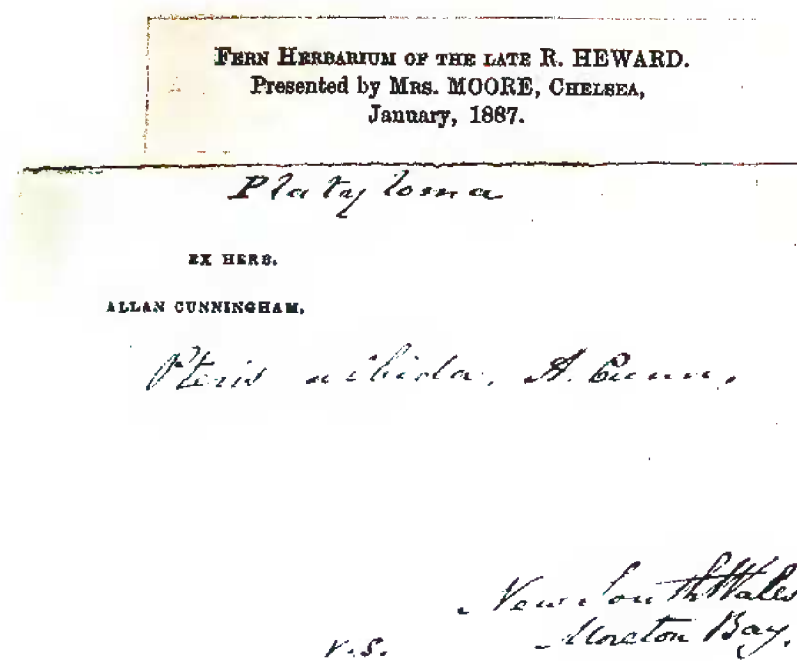 FERN HERBARIUM OF THE LATE R. HEWARD.
Presented by MRS. MOORE, CHELSEA,
January, 1887.
Platyloma
EX HERB.
ALLAN CUNNINGHAM.
Pteris nitida, A. Cunn.
New South Wales
Moreton Bay.
v.s.